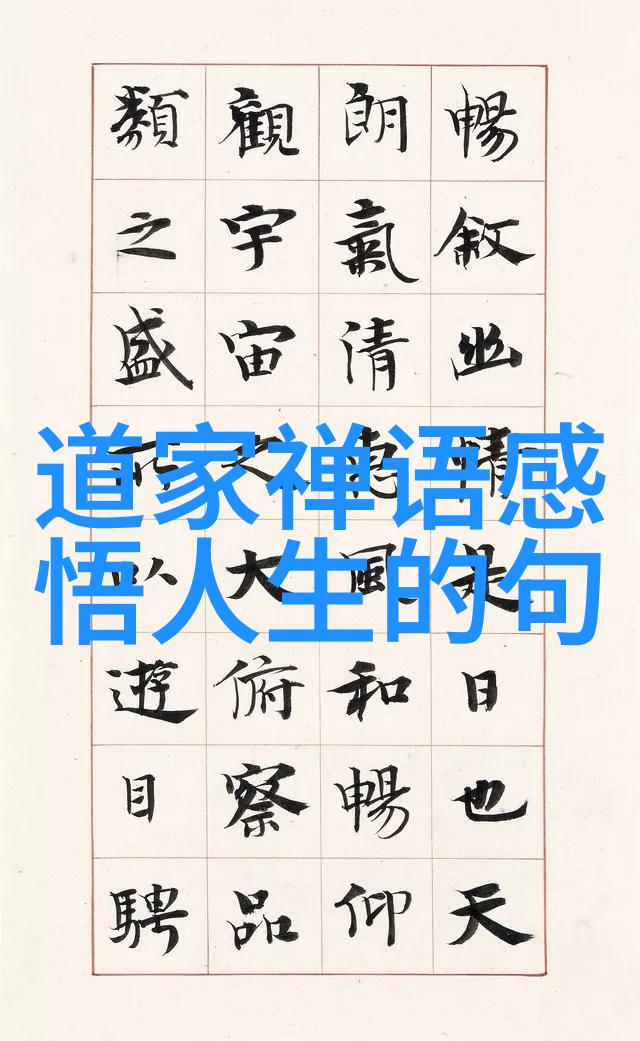 暢敘幽情是日也天
朗氣清惠風和暢仰
觀宇宙之大俯察品
類之盛所以遊目騁
道家禅语感
悟人生的句